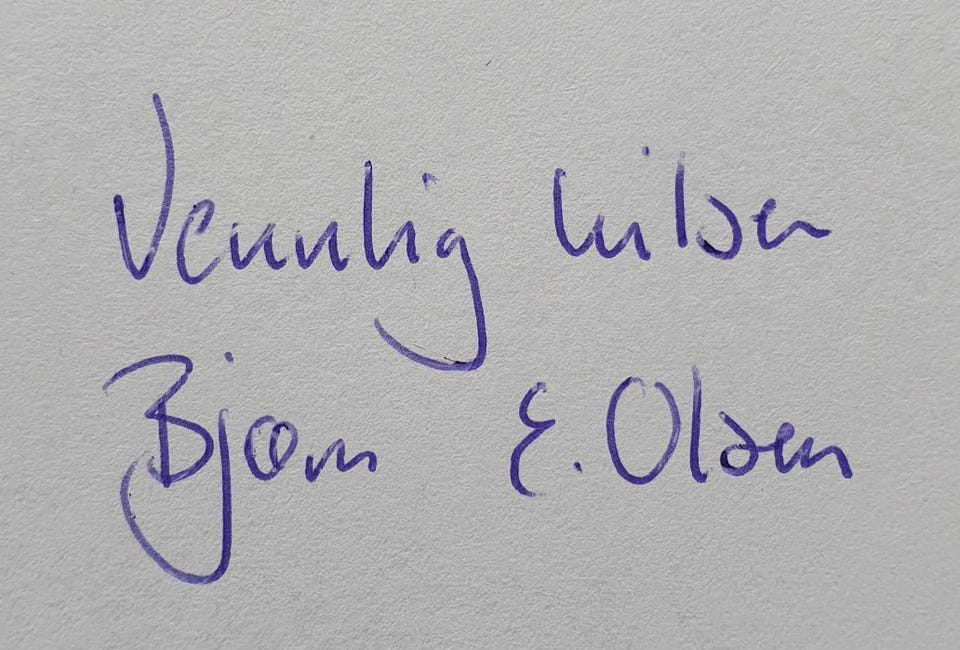 Vennlig hilsen
Bjørn E. Olsen